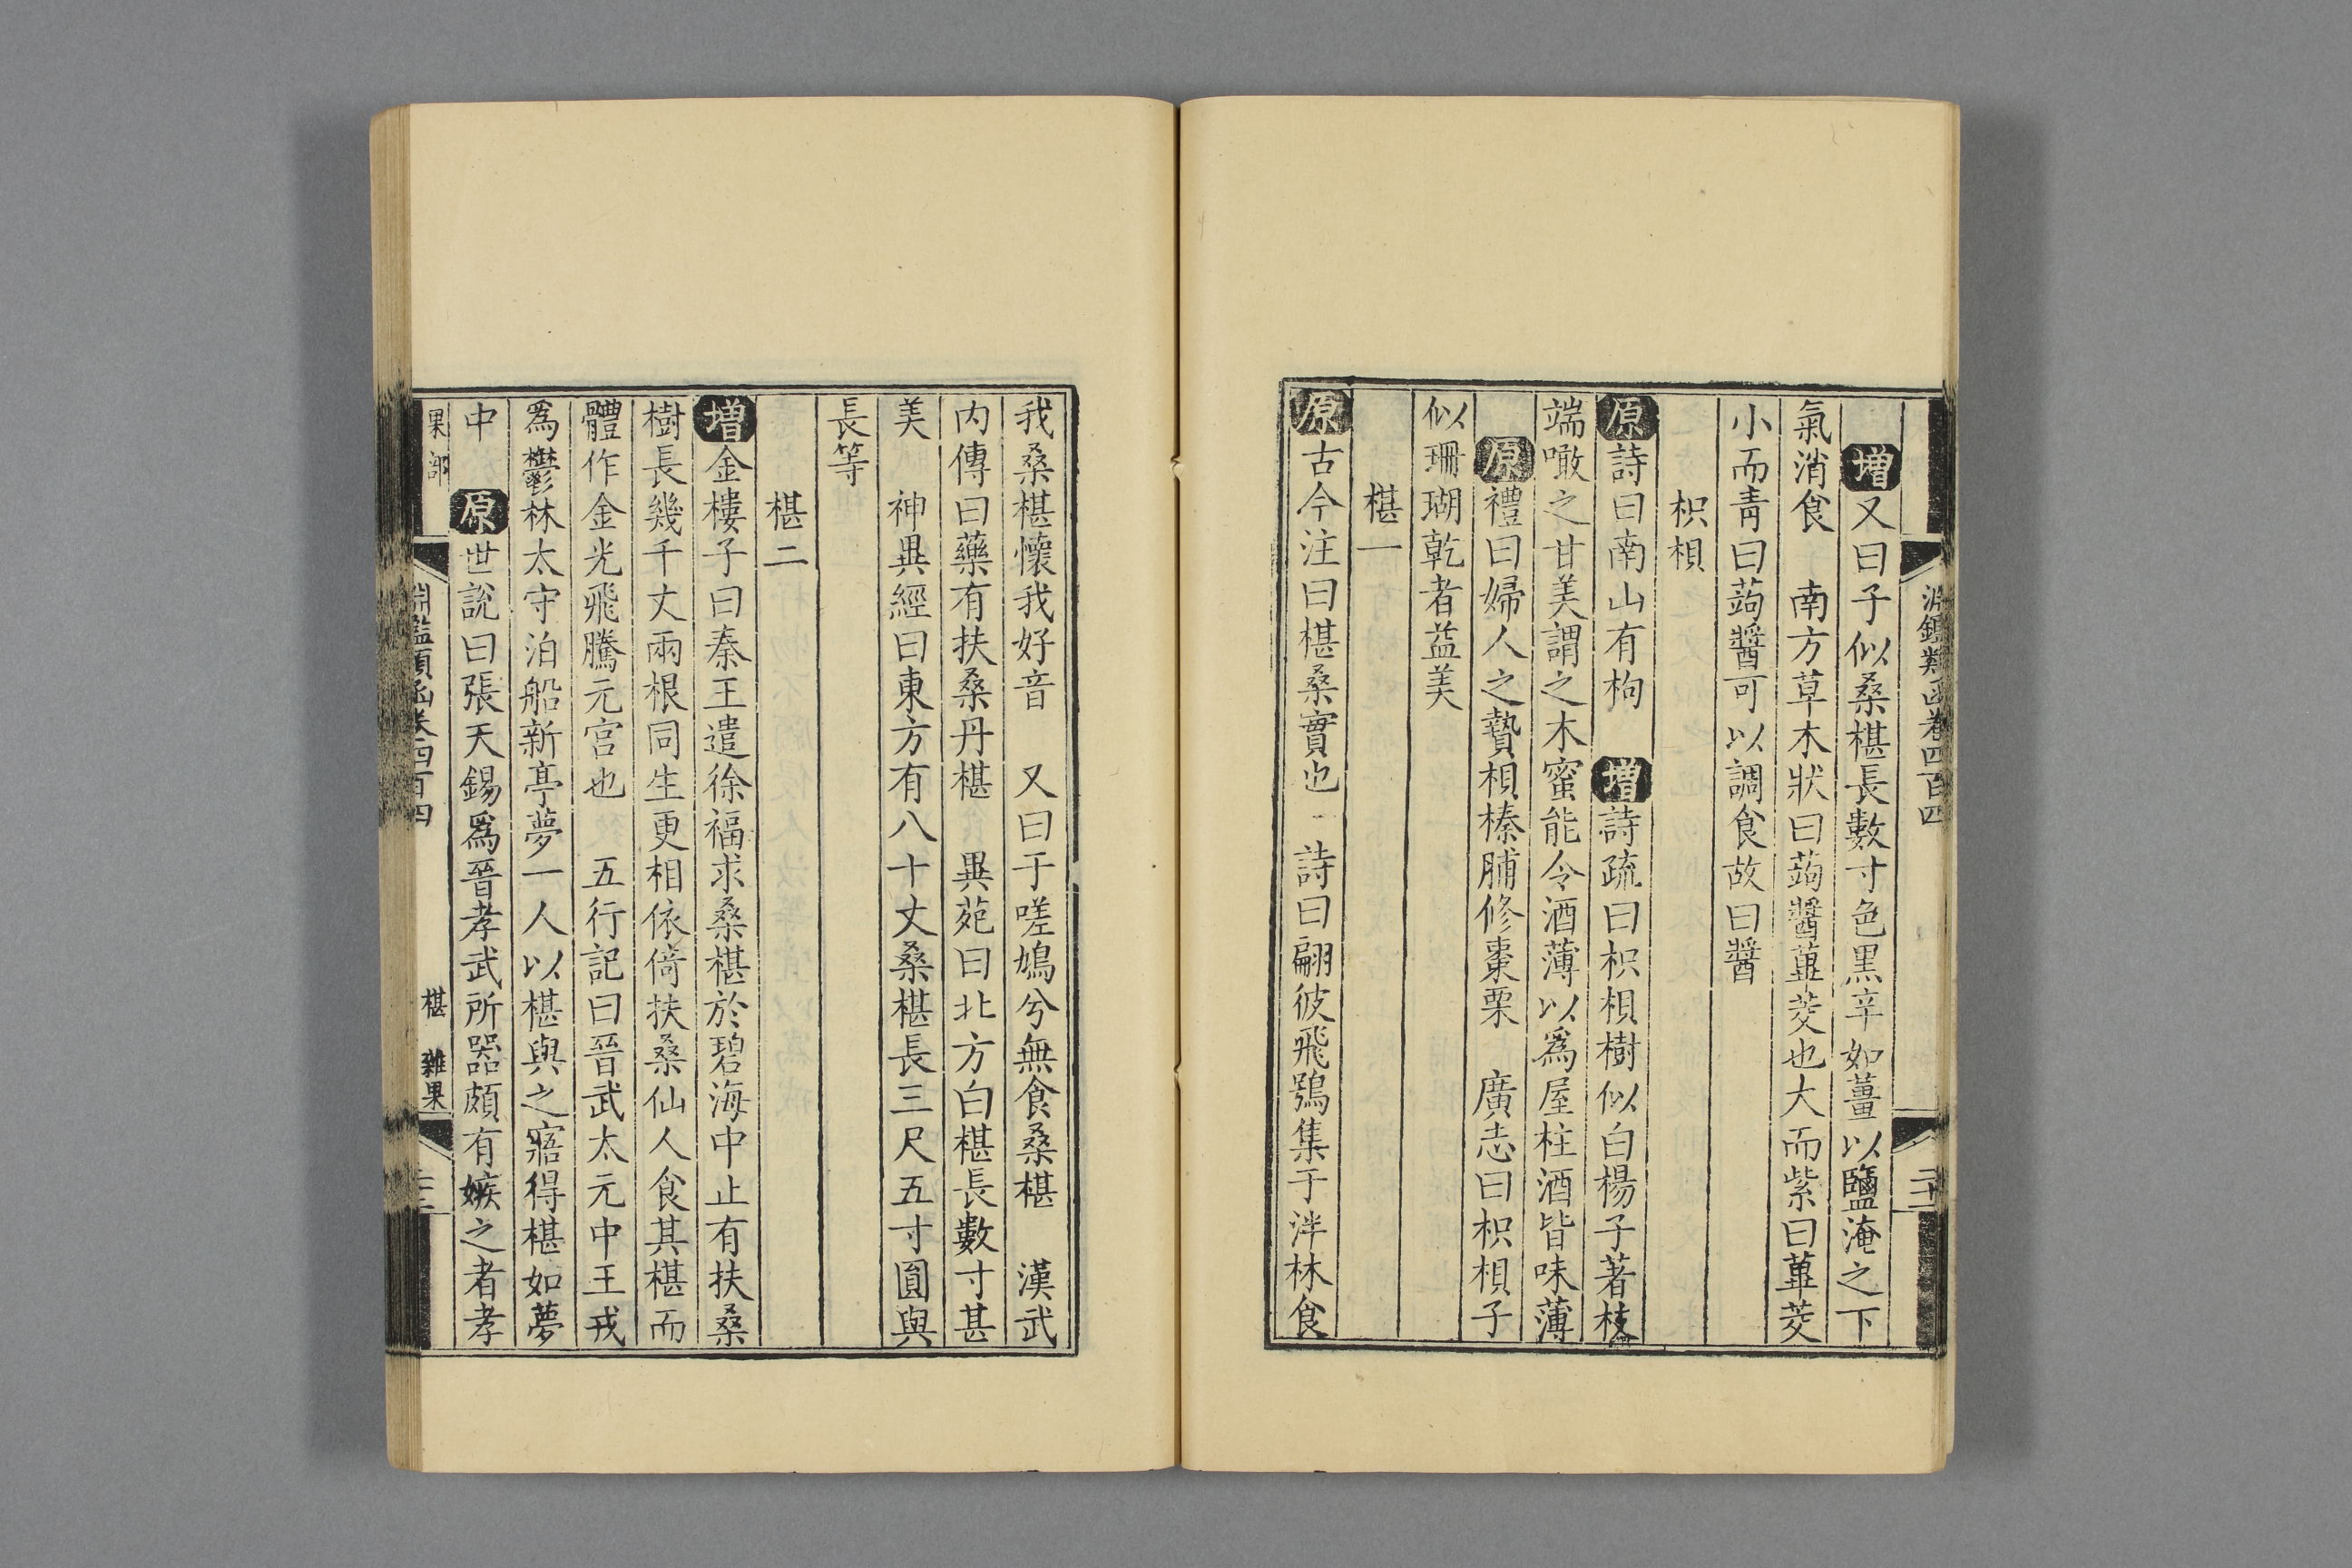 淵鑑類函卷四百四
增又曰子似桑椹長數寸色黑辛如薑以鹽淹之下
氣消食 南方草木狀曰蒟醬蓽茇也大而紫曰蓽茇
小而青曰蒟醬可以調食故曰醬
枳椇
原詩曰南山有枸 增詩疏曰枳椇樹似白楊子著枝
端噉之甘美謂之木蜜能令酒薄以爲屋柱酒皆味薄
原禮曰婦人之贄椇榛脯修棗栗 廣志曰枳椇子
似珊瑚乾者益美
椹一
原古今注曰椹桑實也 詩曰翩彼飛鴞集于泮林食
我桑椹懷我好音 又曰于嗟鳩兮無食桑椹 漢武
内傳曰藥有扶桑丹椹 異苑曰北方白椹長數寸甚
美 神異經曰東方有八十丈桑椹長三尺五寸圓與
長等
椹二
增金樓子曰秦王遣徐福求桑椹於碧海中止有扶桑
樹長幾千丈兩根同生更相依倚扶桑仙人食其椹而
體作金光飛騰元宮也 五行記曰晉武太元中王戎
爲鬱林太守泊船新亭夢一人以椹與之寤得椹如夢
中 原世說曰張天錫爲晉孝武所器頗有嫉之者孝
果部 淵鑑類函卷四百四 椹 雜果